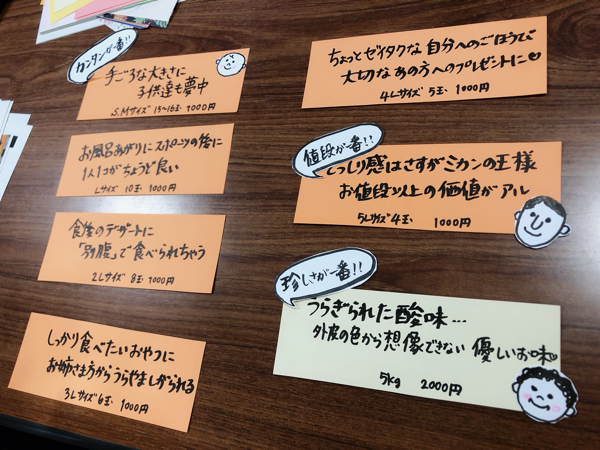 カンタンが一番!!
手ごろな大きさに
子供達も夢中
S.Mサイズ 13〜16玉 1000円
お風呂あがりに スポーツの後に
1人1コがちょうど良い
Lサイズ 10玉 1000円
食後のデザートに
「別腹」で食べられちゃう
2Lサイズ 8玉 1000円
しっかり食べたいおやつに
お姉さま方からうらやましがられる
3Lサイズ 6玉 1000円
ちょっとゼイタクな 自分へのごほうびで
大切なあの方へのプレゼントに♡
4Lサイズ 5玉 1000円
値段が一番!!
どっしり感はさすがミカンの王様
お値段以上の価値がアル
5Lサイズ 4玉 1000円
珍しさが一番!!
うらぎられた酸味…
外皮の色から想像できない 優しいお味♡
5kg 2000円